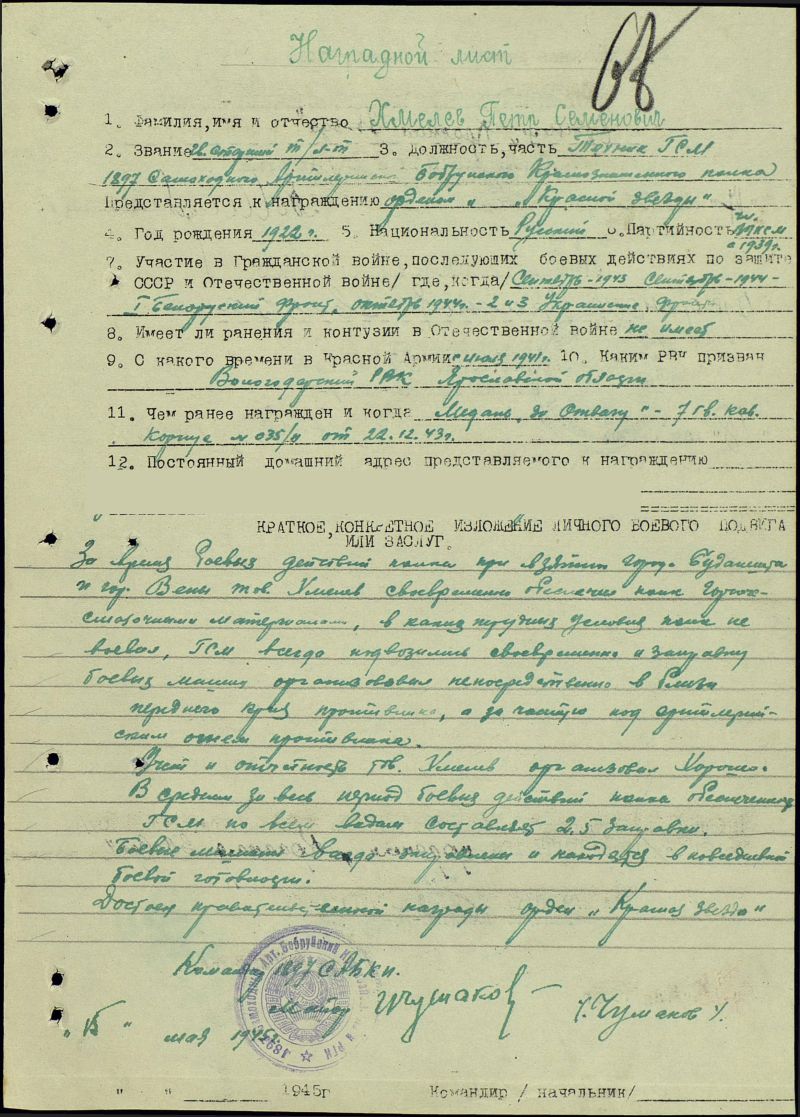 Наградной лист
68
1. Фамилия, имя и отчество Хмелев Петр Семенович
2. Звание гв. старший т/л-т 3. Должность, часть Техник ГСМ
1897 Самоходного Артиллерийского Бобруйского Краснознаменного полка
Представляется к награждению орденом „ „Красной звезды"
4. Год рождения 1922 г. 5. Национальность Русский 6. Партийность чл. ВЛКСМ
с 1939г.
7. Участие в Гражданской войне, последующих боевых действиях по защите
СССР и Отечественной войне/ где, когда/ Сентябрь-1943 Сентябрь-1944-
I Белорусский фронт, октябрь 1944г.- 2 и 3 Украинские фронты
8. Имеет ли ранения и контузии в Отечественной войне не имеет
9. С какого времени в Красной Армии с июля 1941г. 10. Каким РВК призван
РВК Ярославской области
11. Чем ранее награжден и когда Медаль „за Отвагу" - 7 гв. кав.
Корпус № 035/н от 22.12.43г.
12. Постоянный домашний адрес представляемого к награждению
КРАТКОЕ, КОНКРЕТНОЕ ИЗЛОЖЕНИЕ ЛИЧНОГО БОЕВОГО ПОДВИГА
ИЛИ ЗАСЛУГ.
За время боевых действий полка при взятии города Будапешта
и гор. Вены тов. Хмелев своевременно обеспечил полк горюче-
смазочными материалами, в каких трудных условиях полк не
воевал, ГСМ всегда подвозились своевременно и заправку
боевых машин организовывал непосредственно в близи
переднего края противника, а за частую под артиллерий-
ским огнем противника.
Учет и отчетность тов. Хмелев организовал хорошо.
В среднем за весь период боевых действий полка обеспеченность
ГСМ по всем видам составляет 2,5 заправки.
Боевые машины всегда заправлены и находятся в повседневной
боевой готовности.
Достоин правительственной награды орден „Красная звезда"
Командир 1897 САБКп.
Майор Чумаков /Чумаков/
„15" мая 1945г.
" " 1945г Командир / начальник/